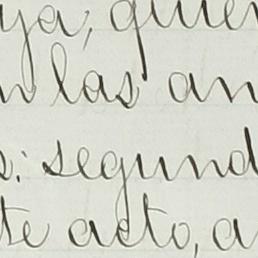 ya, quien
n las an
s: segund
te acto, a